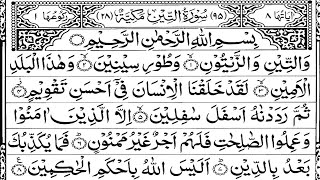 اٰیَاتُهَا ٨ (٩٥) سُوْرَةُ التِّیْنِ مَكِّیَّةٌ (٢٨) رُكُوْعُهَا ١
بِسْمِ اللّٰهِ الرَّحْمٰنِ الرَّحِیْمِ
وَالتِّیْنِ وَالزَّیْتُوْنِ ۙ١ وَطُوْرِ سِیْنِیْنَ ۙ٢ وَهٰذَا الْبَلَدِ
الْاَمِیْنِ ۙ٣ لَقَدْ خَلَقْنَا الْاِنْسَانَ فِیْۤ اَحْسَنِ تَقْوِیْمٍ ۫٤
ثُمَّ رَدَدْنٰهُ اَسْفَلَ سٰفِلِیْنَ ۙ٥ اِلَّا الَّذِیْنَ اٰمَنُوْا
وَعَمِلُوا الصّٰلِحٰتِ فَلَهُمْ اَجْرٌ غَیْرُ مَمْنُوْنٍ ؕ٦ فَمَا یُكَذِّبُكَ
بَعْدُ بِالدِّیْنِ ؕ٧ اَلَیْسَ اللّٰهُ بِاَحْكَمِ الْحٰكِمِیْنَ ٨